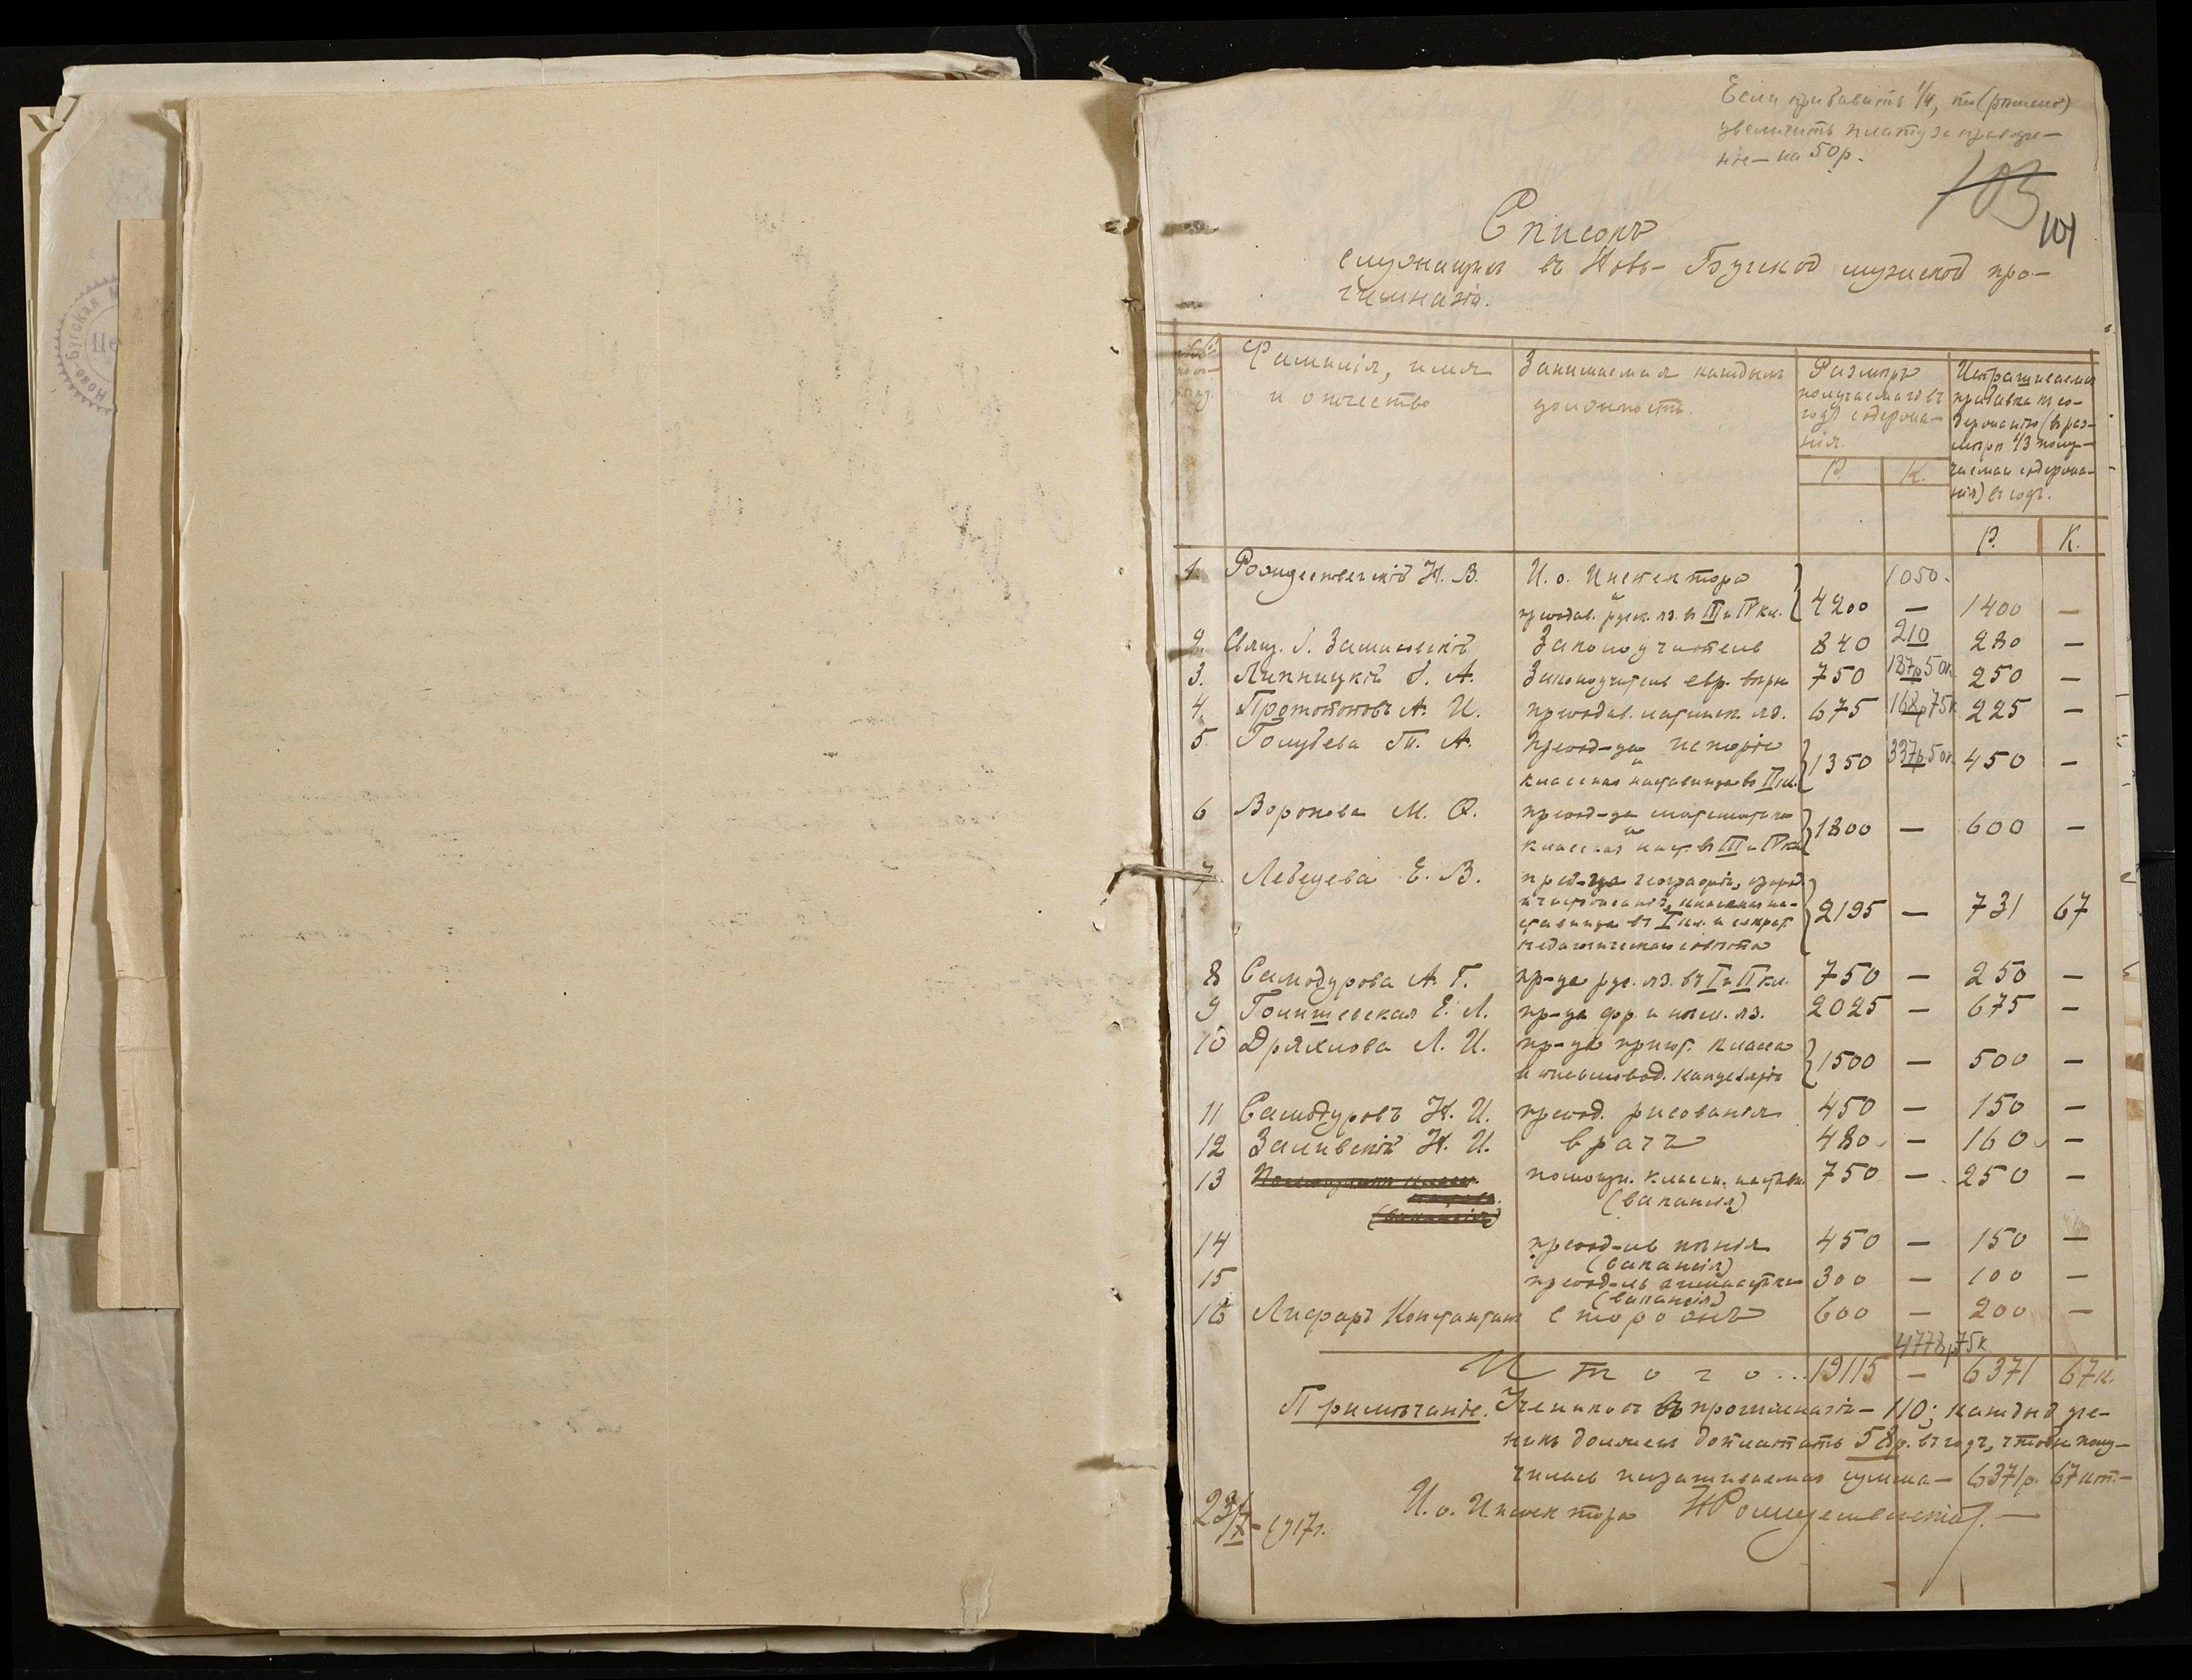 Если прибавить 1/4, то
увеличить плату за правоуче-
ніе — на 50 р.
103
101
Списокъ
служащихъ въ Ново-Бугской мужской про-
гимназіи.
Фамилія, имя
и отчество
Занимаемая каждымъ
должность.
Размѣръ
получаемаго въ
годъ содержа-
нія.
Р. К.
Испрашиваемая
прибавка къ со-
держанію (въ раз-
мѣрѣ 1/3 полу-
чаемаго содержа-
нія) въ годъ.
Р. К.
1. Рождественскій Н. В. И. о. Инспектора 1050.
и
препод. русск. яз. въ III и IV кл. 4200 — 1400 —
2. Свящ. І. Законоучитель 840 210 — 280 —
3. Липницкій І. А. Законоучитель евр. вѣры 750 187р50к — 250 —
4. Протопоповъ А. И. преподав. латинск. яз. 675 168р75к — 225 —
5. Голубева Т. А. препод-ца исторіи
и
классная наставница въ II кл. 1350 337р50к — 450 —
6 Воронова М. Ѳ. препод-ца математики
и
классная наст. въ III и IV кл. 1800 — 600 —
7. Лебедева Е. В. препод-ца географіи, природ.
и чистописанія, классная на-
ставница въ I кл. и секрет.
педагогическаго совѣта 2195 — 731 67
8 Самодурова А. Г. пр-ца рус. яз. въ I и II кл. 750 — 250 —
9 Е. Л. пр-ца фр. и нѣм. яз. 2025 — 675 —
10 Дряхлова Л. И. пр-ца пригот. класса
и письмовод. канцеляріи 1500 — 500 —
11 Самодуровъ Н. И. препод. рисованія 450 — 150 —
12 Заливскій Н. И. врачъ 480 — 160 —
13 помощн. классн. наставн. 750 — 250 —
(вакансія)
14 препод-ль пѣнія 450 — 150 —
(вакансія)
15 препод-ль гимнастики 300 — 100 —
(вакансія)
16 Лифарь Константинъ сторожъ 600 — 200 —
4778р75к
Итого... 19115 — 6371 67к.
Примѣчаніе. Учениковъ въ прогимназіи — 110; каждый уче-
никъ долженъ доплатить 58р. въ годъ, чтобы полу-
чилась испрашиваемая сумма — 6371р. 67 коп. —
И. о. Инспектора НРождественскій. —
23/X - 1917г.